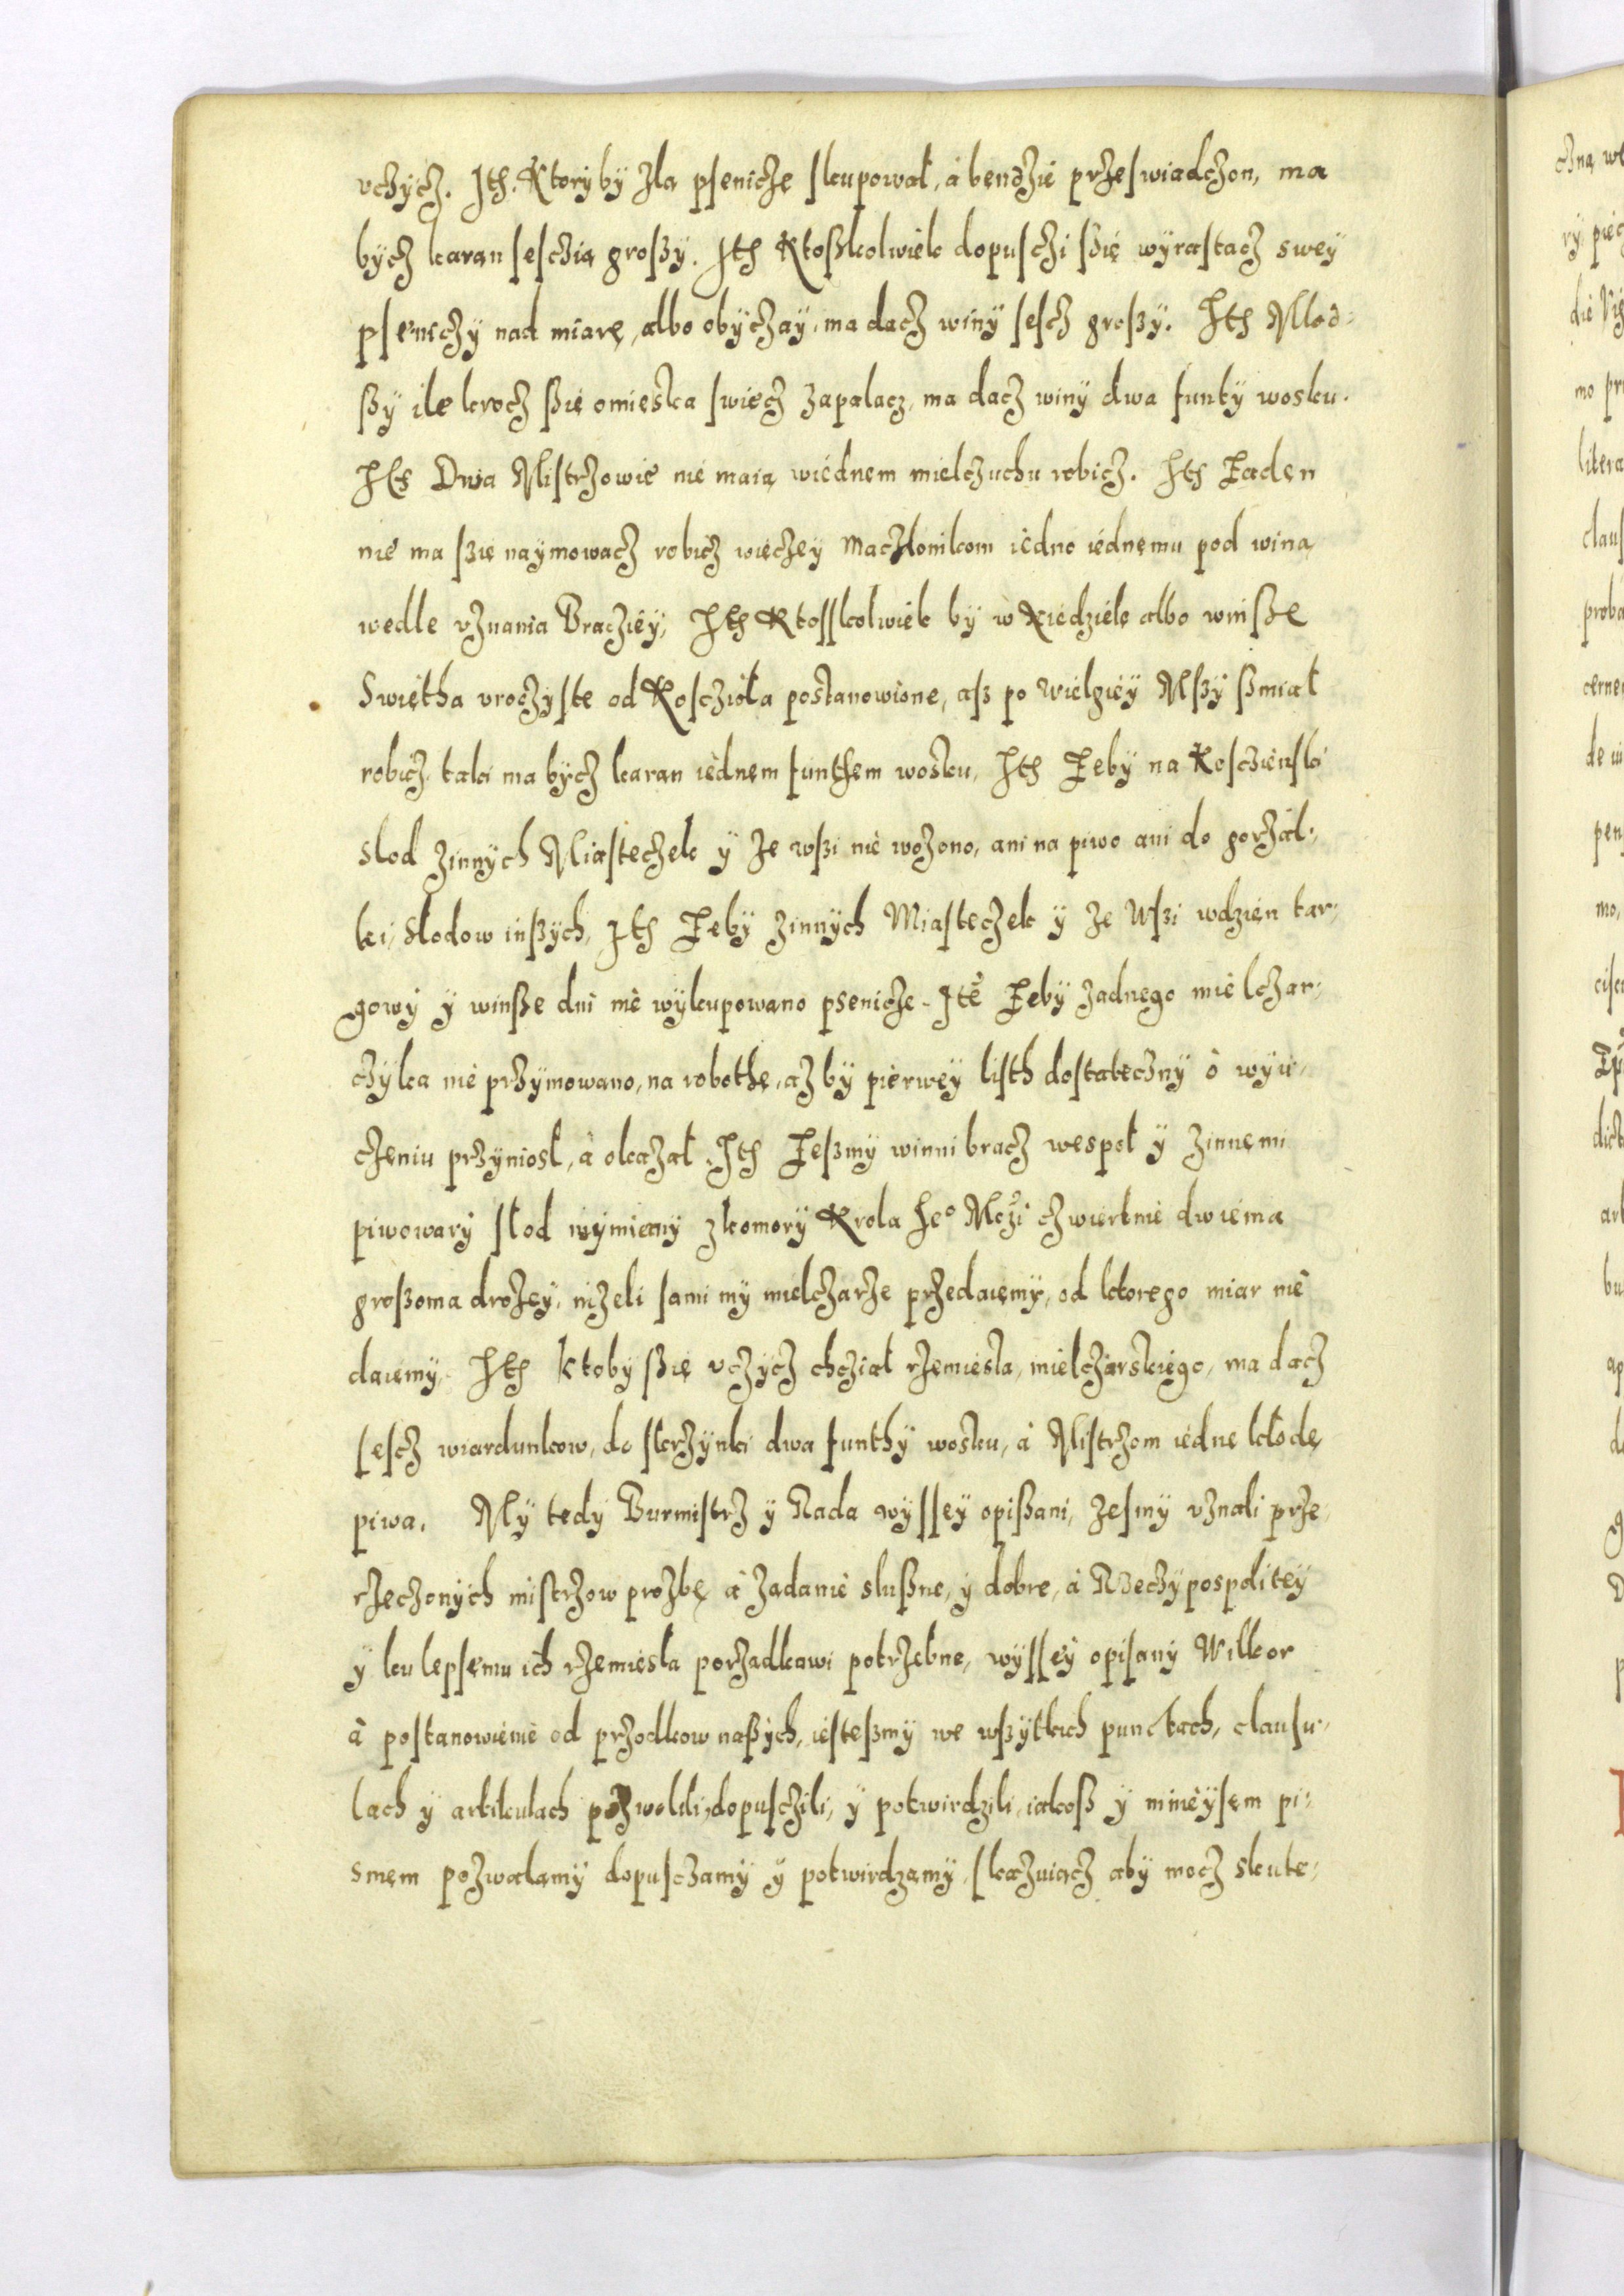 vchycz. Ith. Ktoryby zlą psenicze skupował, á bendzie przeswiadczon, ma
bycz karan sesczią groszy. Ith Ktoszkolwiek dopusczi szię wyrastacz swey
pseniczy nad miarę, albo obyczay, ma dacz winy sescz groszy. Ith Mlod:
szy ilekrocz szię omieska swiecz zapalacz, ma dacz winy dwa funty wosku.
Ith Dwa Mistrzowie nie maią wiednem mielczuchu robicz. Ith Żaden
nie ma szię naymowacz robicz więczey Maczkonikom iedno iednemu pod winą
wedle vznania Bracziey, Ith Ktosskolwiek by w Niedzielę albo winsze
Swiętha vroczyste od Kosczioła postanowione, asz po wielgiey Mszy szmiał
robicz, taki ma bycz karan iednem funthem wosku, Ith Żeby na Kosczienski
słod zinnych Miasteczek y ze wszi nie wozono, ani na piwo ani do gorzał:
ki, Słodow inszych, Ith Żeby zinnych Miasteczek y ze Wszi wdzien tar:
gowy y winsze dni nie wykupowano psenicze. Ite Żeby zadnego mielczar:
czyka nie przymowano, na robothę, azby pierwey listh dostateczny o wyu:
czeniu przyniosł, á okazał. Ith Żeszmy winni bracz wespoł y zinnemi
piwowary słod wymiany zkomory Krola Ieº Mczi czwiertnie dwiema
groszoma drozey, nizeli sami my mielczarze przedaiemy, od ktorego miar nie
daiemy. Ith ktoby szię vczycz chcział rzemiesła, mielczarskiego, ma dacz
sescz wiardunkow, do skrzynki dwa funthy wosku, á Mistrzom iednę kłodę
piwa. My tedy Burmistrz y Rada wyssey opiszani, zesmy vznali prze:
rzeczonych mistrzow prozbę á ządanie słuszne, y dobre, á Rzeczypospolitey
y ku lepsemu ich rzemiesła porządkawi potrzebne, wyssey opisany Wilkor
á postanowienie od przodkow naszych, iestesmy we wszytkich punctach, clausu:
lach y artikułach pozwolili, dopusczili, y potwirdzili, iakosz y ninieysem pi:
smem pozwalamy dopusczamy y potwirdzamy, skazuiącz aby mocz skute: